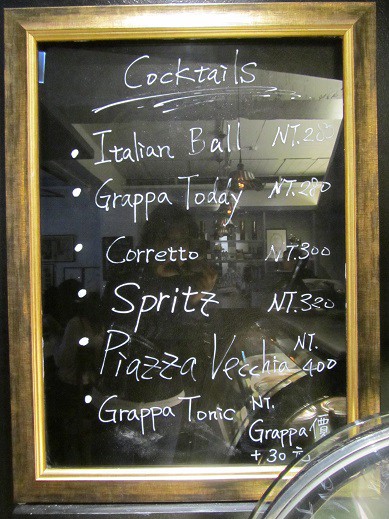 Cocktails
• Italian Ball
• Grappa Toddy NT.280
• Corretto NT.300
• Spritz NT.320
• Piazza Vecchia NT. 400
• Grappa Tonic NT.
Grappa價
+30元